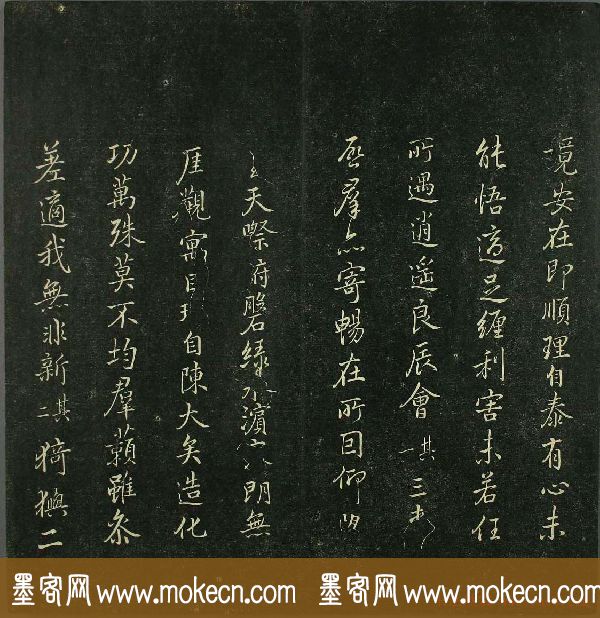 境安在即順理自泰有心未
能悟適足纏利害未若任
所遇逍遙良辰會 其一 三春
啟羣品寄暢在所因仰
天際府磐綠水濱寥朗無
厓觀寓目理自陳大矣造化
功萬殊莫不均羣籟雖參
差適我無非新 其二 猗與二
墨客网 www.mokecn.com 墨客网 www.mokecn.com